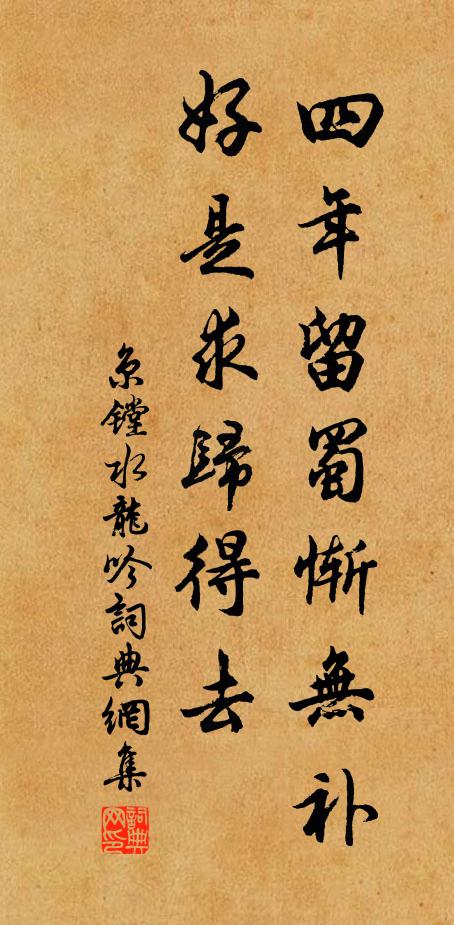 四年留蜀惭無补
好是求歸得去
京鏜水龍吟詞典網集
詞典网印